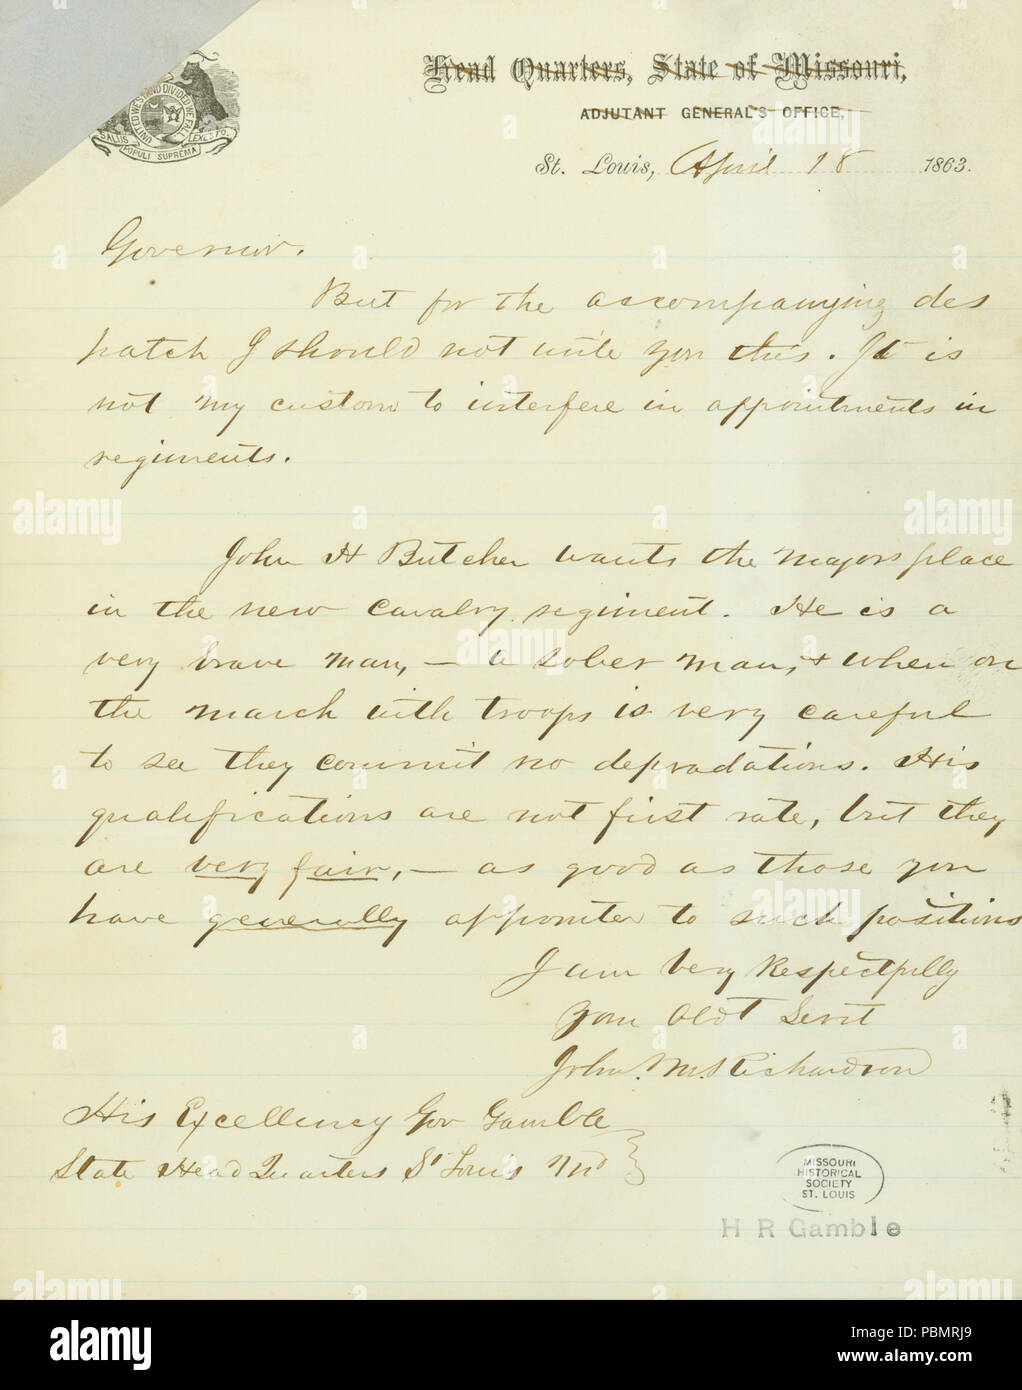 Head Quarters, State of Missouri,
ADJUTANT GENERAL'S OFFICE,
UNITED WE STAND DIVIDED WE FALL
SALUS POPULI SUPREMA LEX ESTO.
St. Louis, April 18 1863.
Governor.
But for the accompanying des
patch I should not write you this. It is
not my custom to interfere in appointments in
regiments.
John H Butcher wants the majors place
in the new Cavalry regiment. He is a
very brave man, – a sober man, & when on
the march with troops is very careful
to see they commit no depradations. His
qualifications are not first rate, but they
are very fair, – as good as those you
have generally appointed to such positions
I am Very Respectfully
Your Obdt Servt
John. M. Richardson
His Excellency Gov Gamble
State Head Quarters St Louis Mo
MISSOURI
HISTORICAL
SOCIETY
ST. LOUIS
H R Gamble
alamy
alamy
Image ID: PBMRJ9
www.alamy.com